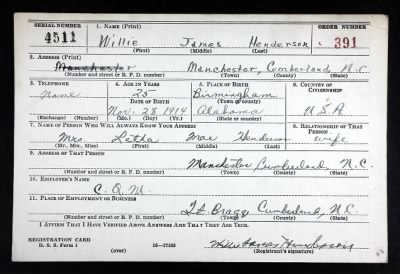 SERIAL NUMBER
4511
1. NAME (Print)
Willie James Henderson
(First) (Middle) (Last)
ORDER NUMBER
391
2. ADDRESS (Print)
Manchester Manchester, Cumberland, N.C.
(Number and street or R. F. D. number) (Town) (County) (State)
3. TELEPHONE
None
(Exchange) (Number)
4. AGE IN YEARS
25
DATE OF BIRTH
Nov. 28, 1914
(Mo.) (Day) (Yr.)
5. PLACE OF BIRTH
Birmingham
(Town or county)
Alabama
(State or country)
6. COUNTRY OF CITIZENSHIP
USA
7. NAME OF PERSON WHO WILL ALWAYS KNOW YOUR ADDRESS
Mrs Mae Henderson
(Mr., Mrs., Miss) (First) (Middle) (Last)
8. RELATIONSHIP OF THAT PERSON
wife
9. ADDRESS OF THAT PERSON
Manchester Cumberland N.C.
(Number and street or R. F. D. number) (Town) (County) (State)
10. EMPLOYER'S NAME
C. Q. M.
11. PLACE OF EMPLOYMENT OR BUSINESS
Ft Bragg Cumberland, N.C.
(Number and street or R. F. D. number) (Town) (County) (State)
I AFFIRM THAT I HAVE VERIFIED ABOVE ANSWERS AND THAT THEY ARE TRUE.
REGISTRATION CARD
D. S. S. Form 1 (over) 16—17105
Willie James Henderson
(Registrant's signature)